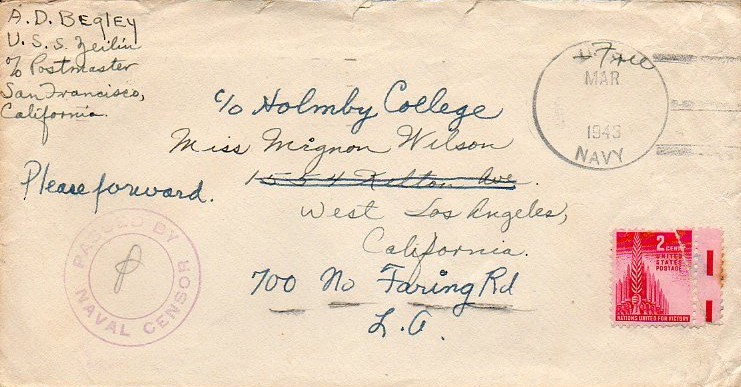 A. D. Begley
U. S. S. Zeilin
c/o Postmaster
San Francisco,
California.
Free
MAR
1943
NAVY
c/o Holmby College
Miss Mignon Wilson
1554 Kelton Ave.
Please forward.
West Los Angeles,
California.
700 No Faring Rd
L.A.
PASSED BY
NAVAL CENSOR
2 CENTS
UNITED
STATES
POSTAGE
NATIONS UNITED FOR VICTORY